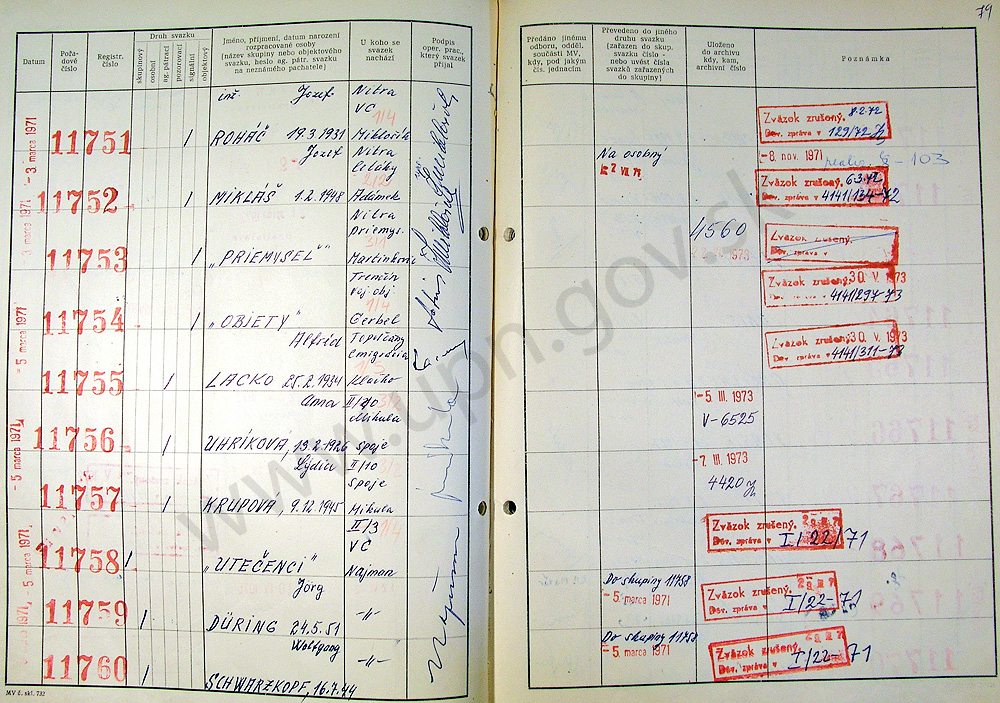 79
Datum
Pořa-
dové
číslo
Registr.
číslo
Druh svazku
skupinový
osobní
ag. pátrací
pozorovací
signální
objektový
Jméno, příjmení, datum narození
rozpracované osoby
(název skupiny nebo objektového
svazku, heslo ag. pátr. svazku
na neznámého pachatele)
U koho se
svazek
nachází
Podpis
oper. prac.,
který svazek
přijal
Předáno jinému
odboru, odděl.
součásti MV,
kdy, pod jakým
čís. jednacím
Převedeno do jiného
druhu svazku
(zařazen do skup.
svazku číslo -
nebo uvést čísla
svazků zařazených
do skupiny)
Uloženo
do archivu
kdy, kam,
archivní číslo
Poznámka
- 3. marca 1971
11751
inž. Jozef
ROHÁČ 19.3.1931
Nitra
VC
1/4
Zväzok zrušený. 8.2.72
Dov. zpráva v 129/72
3. marca 1971
11752
Jozef
MIKLÁŠ 1.2.1948
Nitra
Adámek
Na osobný
- 8. nov. 1971
103
Zväzok zrušený.
Dov. zpráva v 4141/134-72
11753
„PRIEMYSEL"
Nitra
Priemys.
3/1
4560
Zväzok zrušený.
Dov. zpráva v
- 5. marca 1971
11754
„OBJETY"
Trenčín
Voj. obj.
1/4
Gerbel
Zväzok zrušený. 30. V. 1973
Dov. zpráva v 4141/297-73
11755
Alfréd
LACKO 25.2.1934
Topoľčany
emigrácia
1/3
Zväzok zrušený. 30. V. 1973
Dov. zpráva v 4141/311-73
- 5. marca 1971
11756
Anna
UHRÍKOVÁ, 13.2.1926
II/10
Mikula
Spoje
- 5. III. 1973
V-6525
11757
Lýdia
KRUPOVÁ, 9.12.1945
II/10
3/2
Spoje
Mikula
- 7. III. 1973
4420
- 5. marca 1971
11758
„UTEČENCI"
II/3
1/4
VČ
Najman
Zväzok zrušený.
Dov. zpráva v I/22/71
11759
Jörg
DÜRING 24.5.51
-"-
Do skupiny 11758
- 5. marca 1971
Zväzok zrušený.
Dov. zpráva v I/22-71
11760
Wolfgang
SCHWARZKOPF, 16.7.44
-"-
Do skupiny 11758
- 5. marca 1971
Zväzok zrušený.
Dov. zpráva v I/22-71
MV č. skl. 732
www.upn.gov.sk